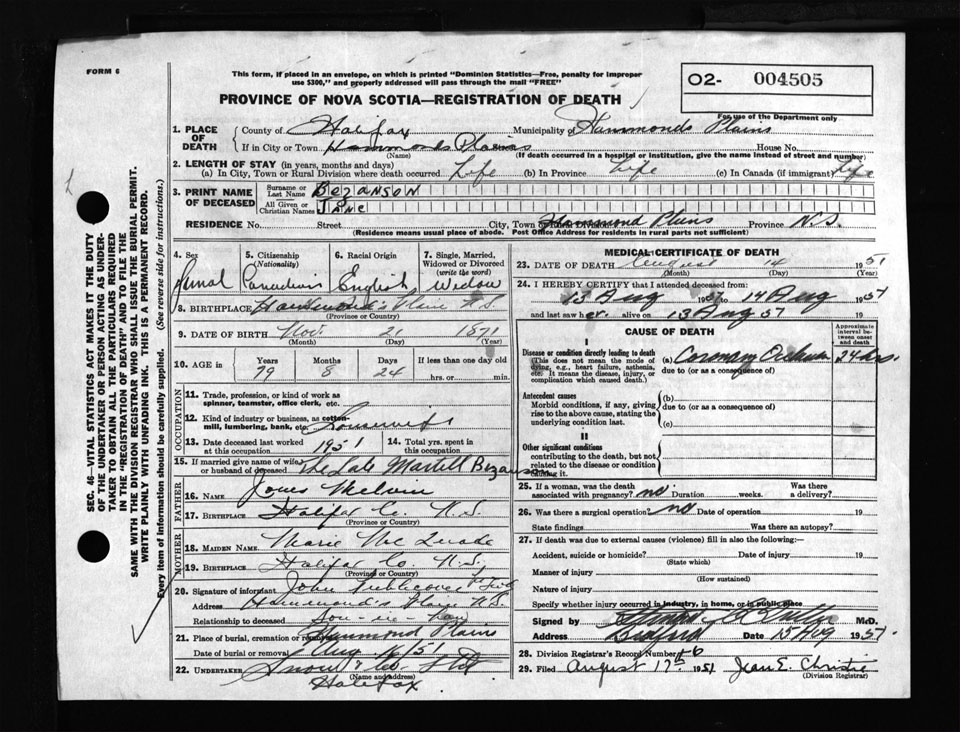 FORM 6
This form, if placed in an envelope, on which is printed "Dominion Statistics—Free, penalty for improper
use $300," and properly addressed will pass through the mail "FREE"
O2- 004505
For use of the Department only
PROVINCE OF NOVA SCOTIA—REGISTRATION OF DEATH
SEC. 46—VITAL STATISTICS ACT MAKES IT THE DUTY
OF THE UNDERTAKER OR PERSON ACTING AS UNDER-
TAKER TO OBTAIN ALL THE PARTICULARS REQUIRED
IN THE "REGISTRATION OF DEATH" AND TO FILE THE
SAME WITH THE DIVISION REGISTRAR WHO SHALL ISSUE THE BURIAL PERMIT.
WRITE PLAINLY WITH UNFADING INK. THIS IS A PERMANENT RECORD.
Every item of information should be carefully supplied. (See reverse side for instructions.)
1. PLACE OF DEATH
County of Halifax Municipality of Hammonds Plains
If in City or Town Hammonds Plains House No.
(Name) (If death occurred in a hospital or institution, give the name instead of street and number)
2. LENGTH OF STAY (in years, months and days)
(a) In City, Town or Rural Division where death occurred Life (b) In Province Life (c) In Canada (if immigrant) Life
3. PRINT NAME OF DECEASED
Surname or Last Name Bezanson
All Given or Christian Names Jane
RESIDENCE No. Street City, Town or Rural Division Hammond Plains Province N.S.
(Residence means usual place of abode. Post Office Address for residents in rural parts not sufficient)
4. Sex 5. Citizenship (Nationality) 6. Racial Origin 7. Single, Married, Widowed or Divorced (write the word)
Canadian English Widow
8. BIRTHPLACE Hammond's Plain N.S.
(Province or Country)
9. DATE OF BIRTH Nov. 21 1871
(Month) (Day) (Year)
10. AGE Years Months Days If less than one day old
79 8 24 hrs. or min.
OCCUPATION
11. Trade, profession, or kind of work as
spinner, teamster, office clerk, etc.
12. Kind of industry or business, as cotton-
mill, lumbering, bank, etc. Housewife
13. Date deceased last worked
at this occupation 1951
14. Total yrs. spent in
this occupation
15. If married give name of wife
or husband of deceased The Late Martell Bezanson
FATHER
16. Name Melvin
17. BIRTHPLACE Halifax Co. N.S.
(Province or Country)
MOTHER
18. MAIDEN NAME Marie
19. BIRTHPLACE Halifax Co. N.S.
(Province or Country)
20. Signature of informant John
Address Hammond's Plain N.S.
Relationship to deceased son-in-law
21. Place of burial, cremation or removal Hammond Plains
Date of burial or removal Aug. 16/51
22. UNDERTAKER Snow & Co. Ltd
(Name and address)
Halifax
MEDICAL CERTIFICATE OF DEATH
23. DATE OF DEATH August 14 1951
(Month) (Day)
24. I HEREBY CERTIFY that I attended deceased from:
13 Aug 1951 to 14 Aug 1951
and last saw her alive on 13 Aug 51
CAUSE OF DEATH
Approximate interval between onset and death
I
Disease or condition directly leading to death
(This does not mean the mode of
dying, e.g., heart failure, asthenia,
etc. It means the disease, injury, or
complication which caused death.)
(a) Coronary Occlusion 24 hrs.
due to (or as a consequence of)
Antecedent causes
Morbid conditions, if any, giving
rise to the above cause, stating the
underlying condition last.
(b)
due to (or as a consequence of)
(c)
II
Other significant conditions
contributing to the death, but not
related to the disease or condition
causing it.
25. If a woman, was the death
associated with pregnancy? no Duration weeks. Was there
a delivery?
26. Was there a surgical operation? no Date of operation 19
State findings Was there an autopsy?
27. If death was due to external causes (violence) fill in also the following:—
Accident, suicide or homicide? Date of injury 19
(State which)
Manner of injury
(How sustained)
Nature of injury
Specify whether injury occurred in industry, in home, or in public place
Signed by M.D.
Address Bedford Date 15 Aug 1951
28. Division Registrar's Record Number 6
29. Filed August 17th 1951 Jean E. Christie
(Division Registrar)